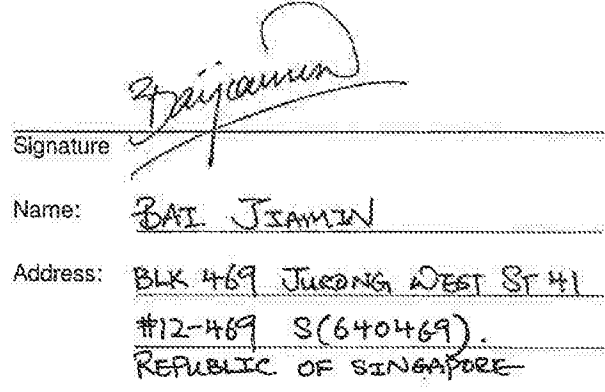 Baijiamin
Signature
Name: BAI JIAMIN
Address: BLK 469 JURONG WEST ST 41
#12-469 S(640469).
REPUBLIC OF SINGAPORE